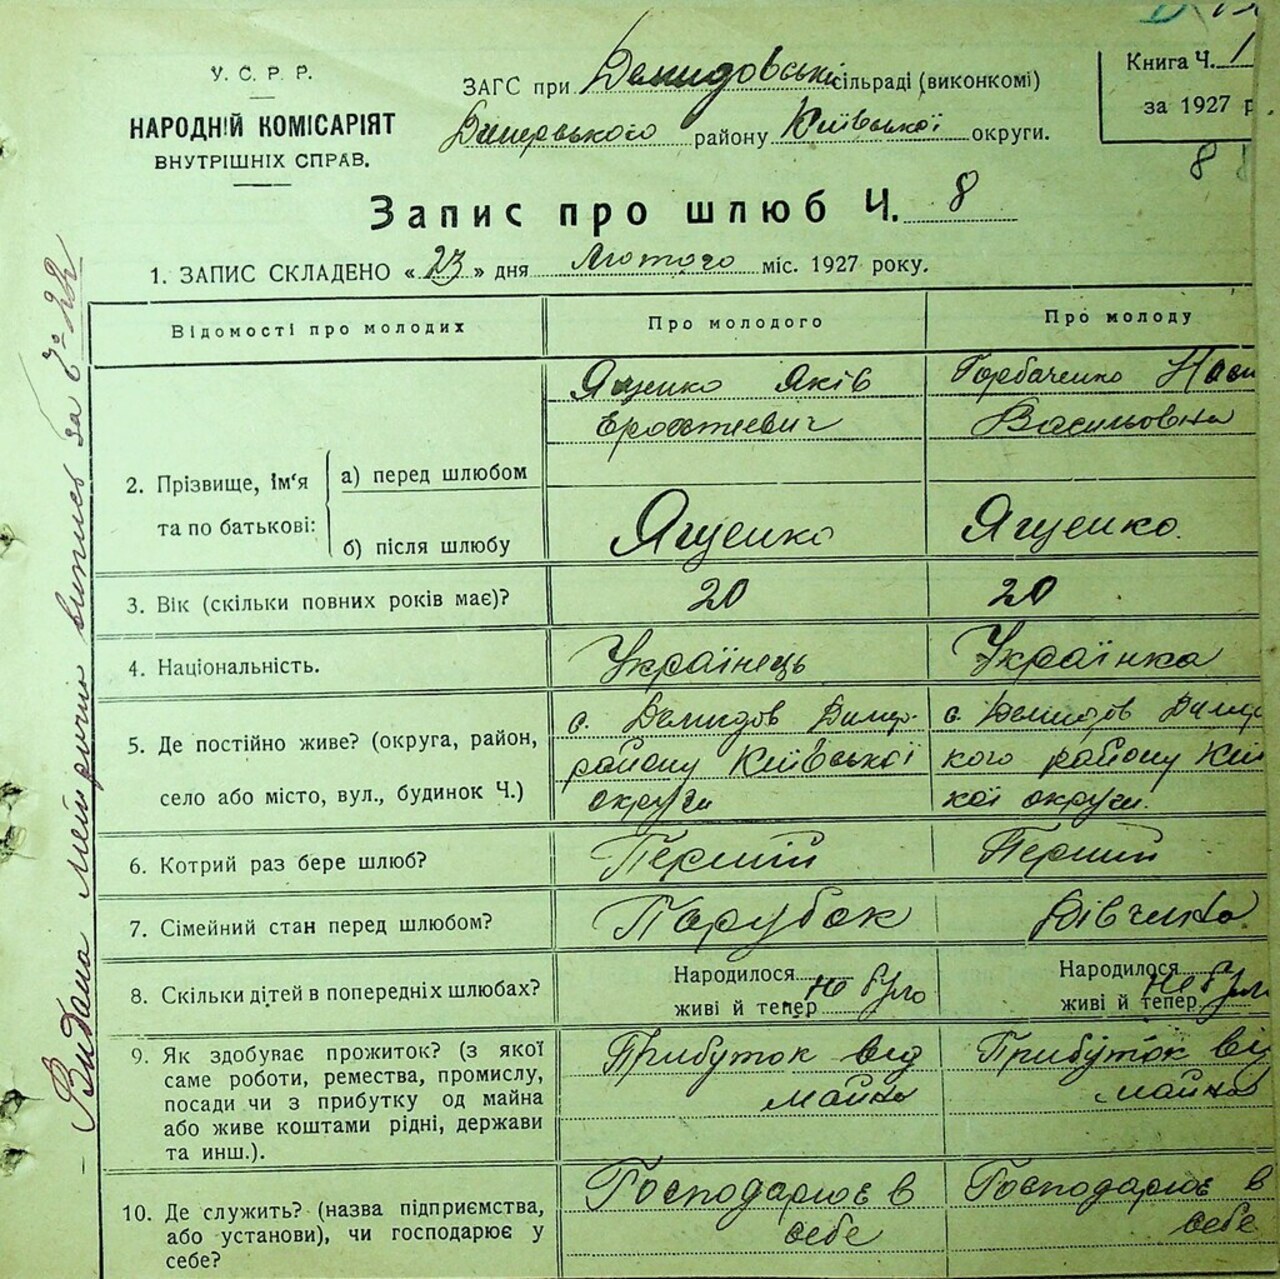 У. С. Р. Р.
НАРОДНІЙ КОМІСАРІЯТ
ВНУТРІШНІХ СПРАВ.
ЗАГС при Демидовські сільраді (виконкомі)
Димерського району Київської округи.
Книга Ч. 1
за 1927 р
8
Запис про шлюб Ч. 8
1. ЗАПИС СКЛАДЕНО «23» дня Лютого міс. 1927 року.
Відомості про молодих
Про молодого
Про молоду
2. Прізвище, ім'я та по батькові:
а) перед шлюбом
Ященко Яків
Горбаченко
Васильовна
б) після шлюбу
Ященко
Ященко.
3. Вік (скільки повних років має)?
20
20
4. Національність.
Українець
Українка
5. Де постійно живе? (округа, район,
село або місто, вул., будинок Ч.)
с. Демидов Димер.
району Київської
округи
с. Демидов
кого району Киї
кої округи.
6. Котрий раз бере шлюб?
Перший
Перший
7. Сімейний стан перед шлюбом?
Парубок
Дівчина
8. Скільки дітей в попередніх шлюбах?
Народилося
живі й тепер не було
Народилося
живі й тепер не було
9. Як здобуває прожиток? (з якої
саме роботи, ремества, промислу,
посади чи з прибутку од майна
або живе коштами рідні, держави
та инш.).
Прибуток від
майна
Прибуток від
майна
10. Де служить? (назва підприємства,
або установи), чи господарює у
себе?
Господарює в
себе
Господарює в
себе
Видана метричн виписъ за